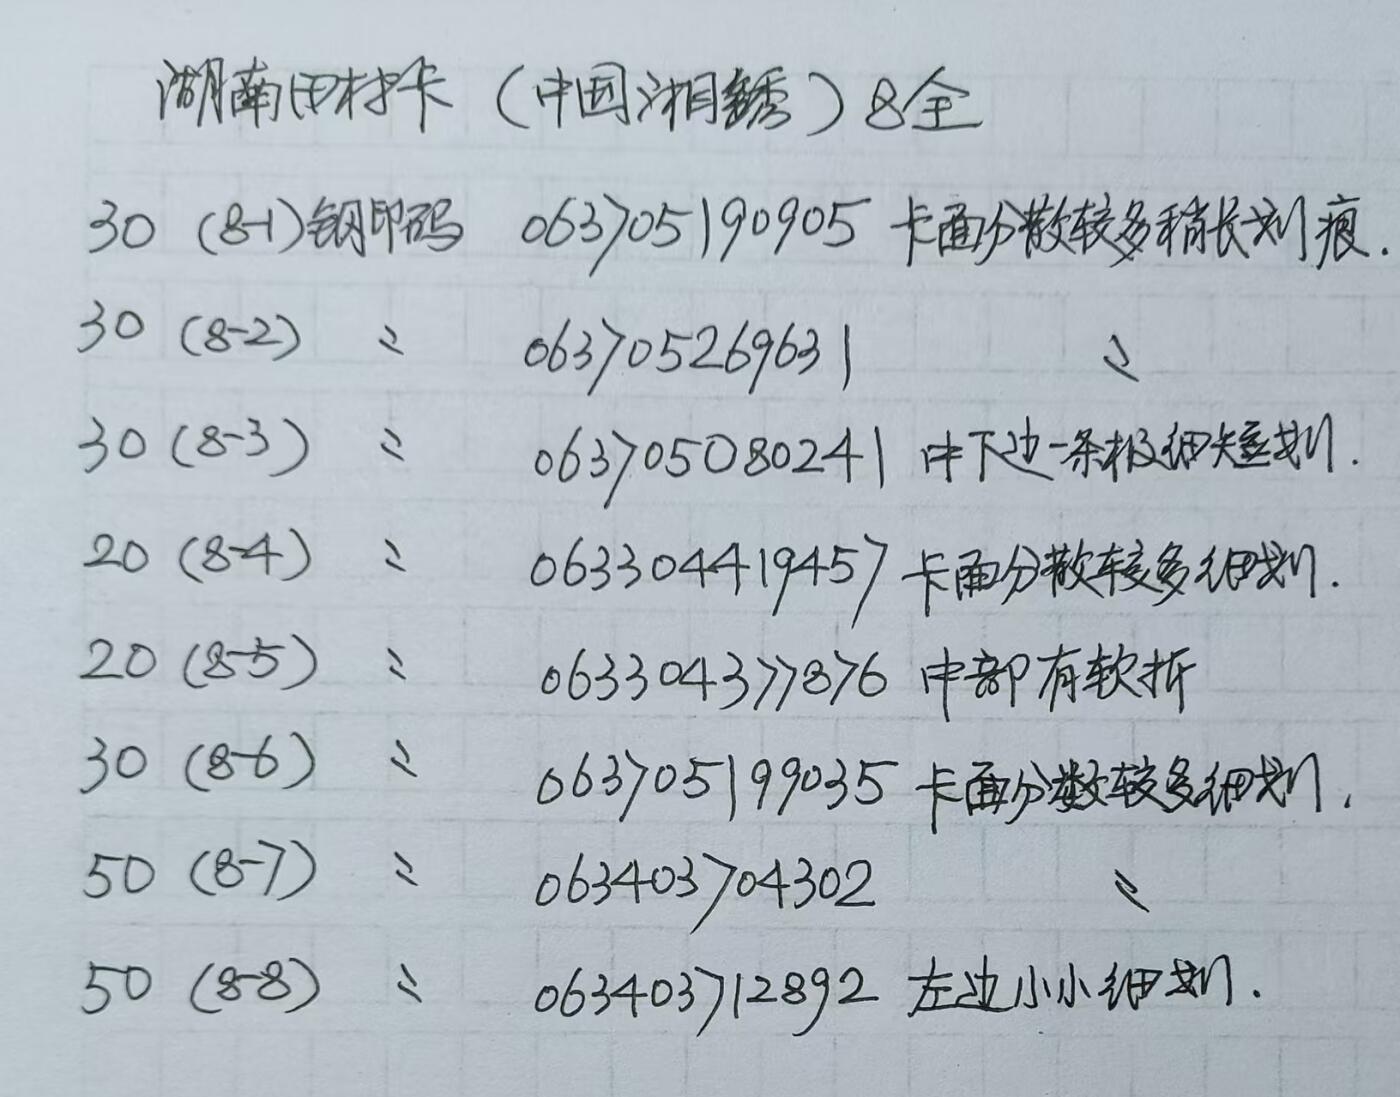 湖南田村卡（中国湘繡）8全
30 (8-1)钢印码 063705190905 卡面分散较多稍长划痕.
30 (8-2) 〃 063705269631 〃
30 (8-3) 〃 063705080241 中下边一条极细短划.
20 (8-4) 〃 063304419457 卡面分散较多细划.
20 (8-5) 〃 063304377876 中部有软折
30 (8-6) 〃 063705199035 卡面分散较多细划.
50 (8-7) 〃 063403704302 〃
50 (8-8) 〃 063403712892 左边小小细划.